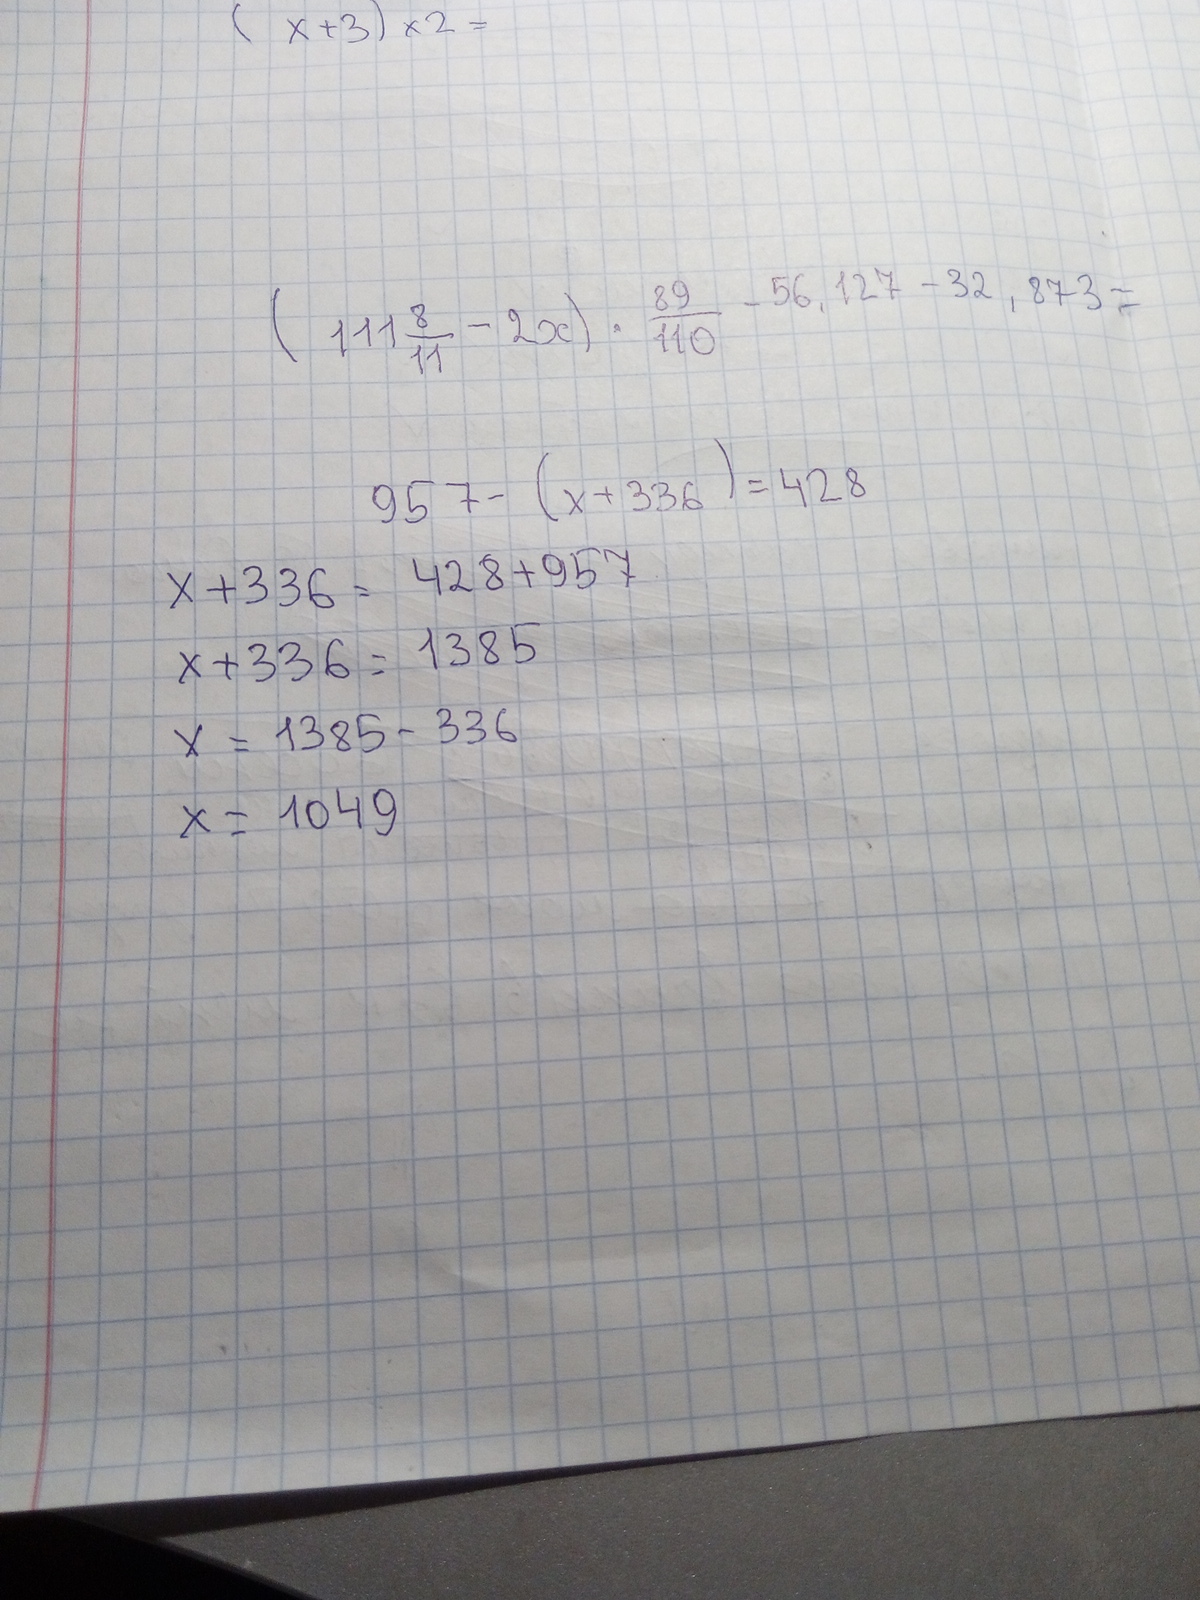 ( x+3) x2 =
(111 8/11 - 2x) · 89/110 - 56,127 - 32,873 =
957 - (x+336) = 428
x+336 = 428+957
x+336 = 1385
x = 1385 - 336
x = 1049